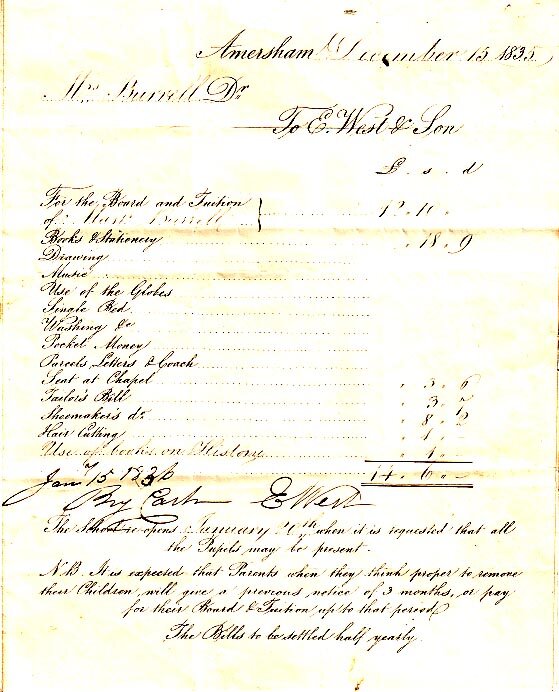 Amersham December 15 1835
Mrs Burrell Dr
To E. West & Son
£ . s . d
For the Board and Tuition
of Mastr Burrell } 12 . 10 .
Books & Stationery . 18 . 9
Drawing
Music
Use of the Globes
Single Bed
Washing &c
Pocket Money
Parcels, Letters & Coach
Seat at Chapel . 3 . 6
Tailor's Bill . 3 . 7
Shoemaker's do . 8 . 2
Hair Cutting . 1 .
Use of books on History . 1 .
14 . 6 . —
Jany 15 1836
By Cash E West
The School re opens January when it is requested that all
the Pupils may be present.
N.B. It is expected that Parents when they think proper to remove
their Children, will give a previous notice of 3 months, or pay
for their Board & Tuition up to that period.
The Bills to be settled half yearly.